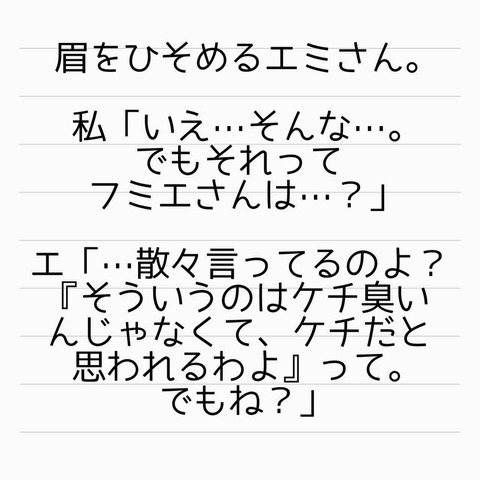 眉をひそめるエミさん。
私「いえ…そんな…。
でもそれって
フミエさんは…？」
エ「…散々言ってるのよ？
『そういうのはケチ臭い
んじゃなくて、ケチだと
思われるわよ』って。
でもね？」